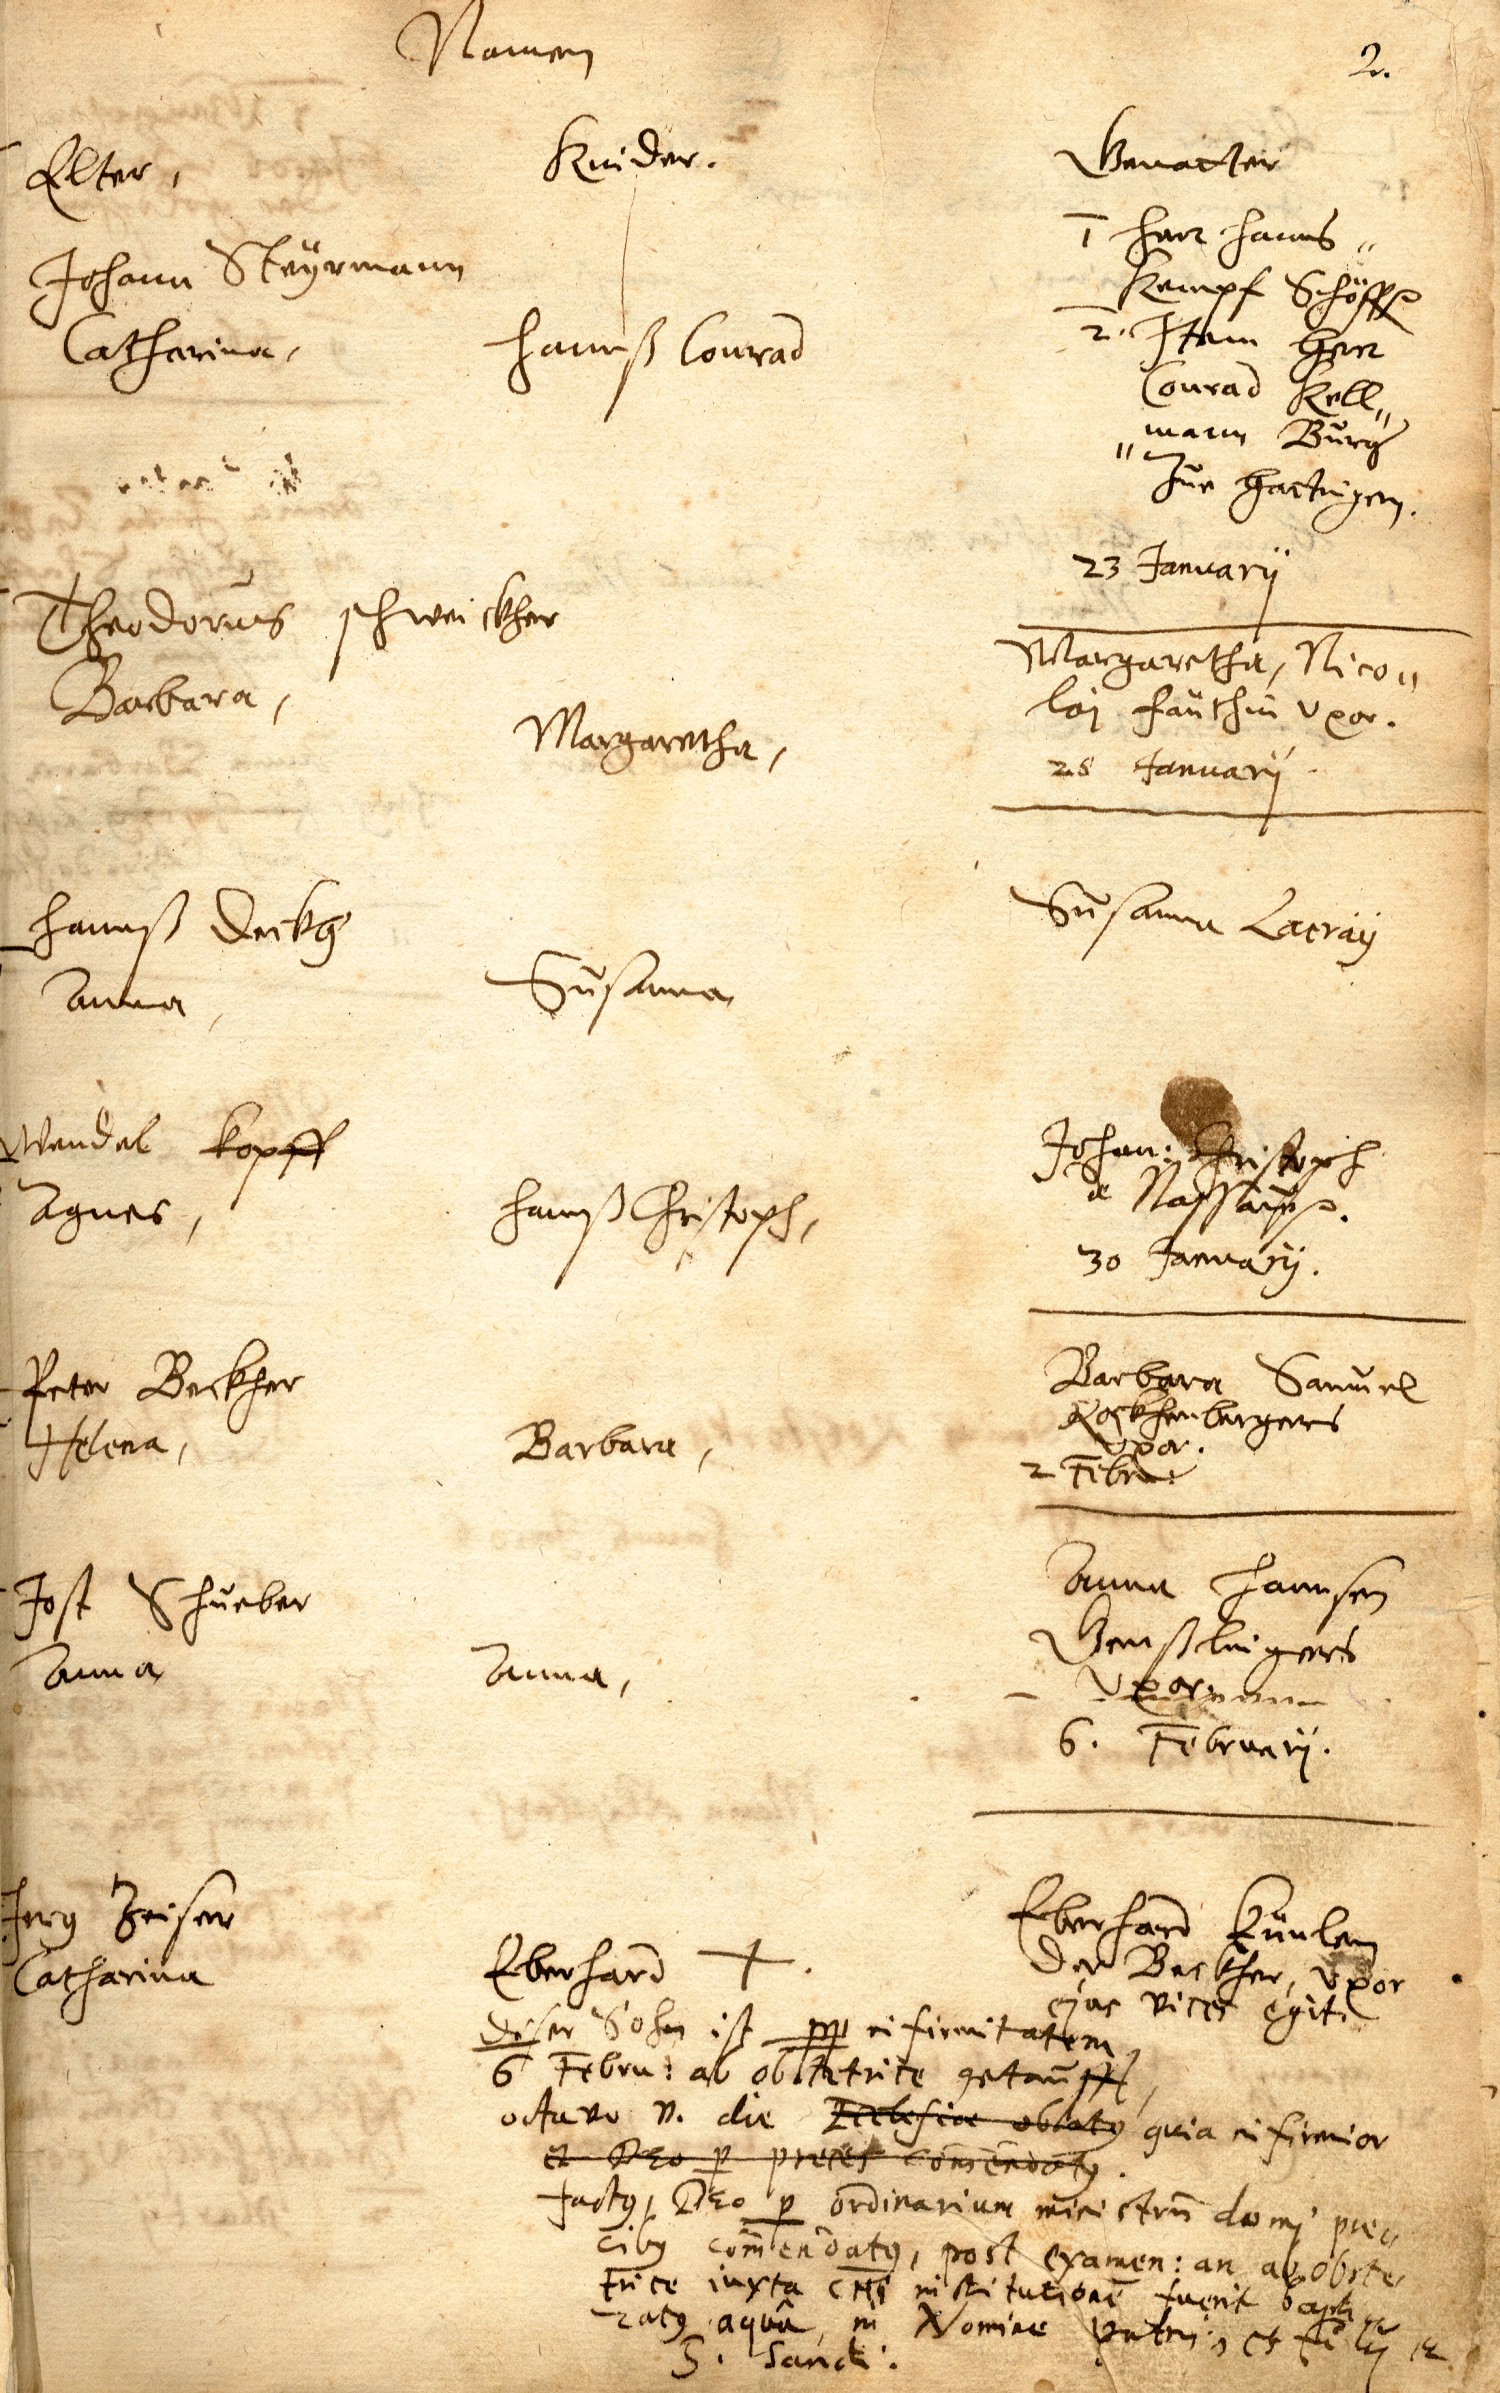 Namen
2.
Elter,
Kinder.
Gevatter
Johann Steÿrmann
Catharina,
Hannß Conrad
1 Herr Hanns
Kempf Schöff
2. Item Herr
Conrad Kell„
„mann Burg
zue
23 Januarij
Theodorus Schweickher
Barbara,
Margaretha,
Margaretha, Nico„
laj Fauthin vxor.
28 Januarij
Hannß
Anna,
Susanna
Susanna
Wendel Kopff
Agnes,
Hannß Christoph,
Johan: Christoph
de
30 Januarij.
Peter Beckher
Helena,
Barbara,
Barbara Samuel
Rockhenbergers
vxor.
2 Febru:
Jost Schueber
Anna
Anna,
Anna Hannsen
Genßlingers
vxor
6. Februarij.
Jerg Zeiser
Catharina
Eberhard +.
Eberhard Künlen
der Beckher, vxor
ejus vices egit.
diser Sohn ist pp infirmitatem
6 Febru: ab obstetrice getaufft,
octavo v. die Ecclesiae oblatq quia infirmior
et Deo p preces comendatq.
factq, Deo p ordinarium ministrū domj pre„
cibq comendatq, post examen: an ab obste„
trice iuxta CHī institutionē fuerit bapti„
zatq aquâ, in Nomine Patris, et filij et
S. Sancti.